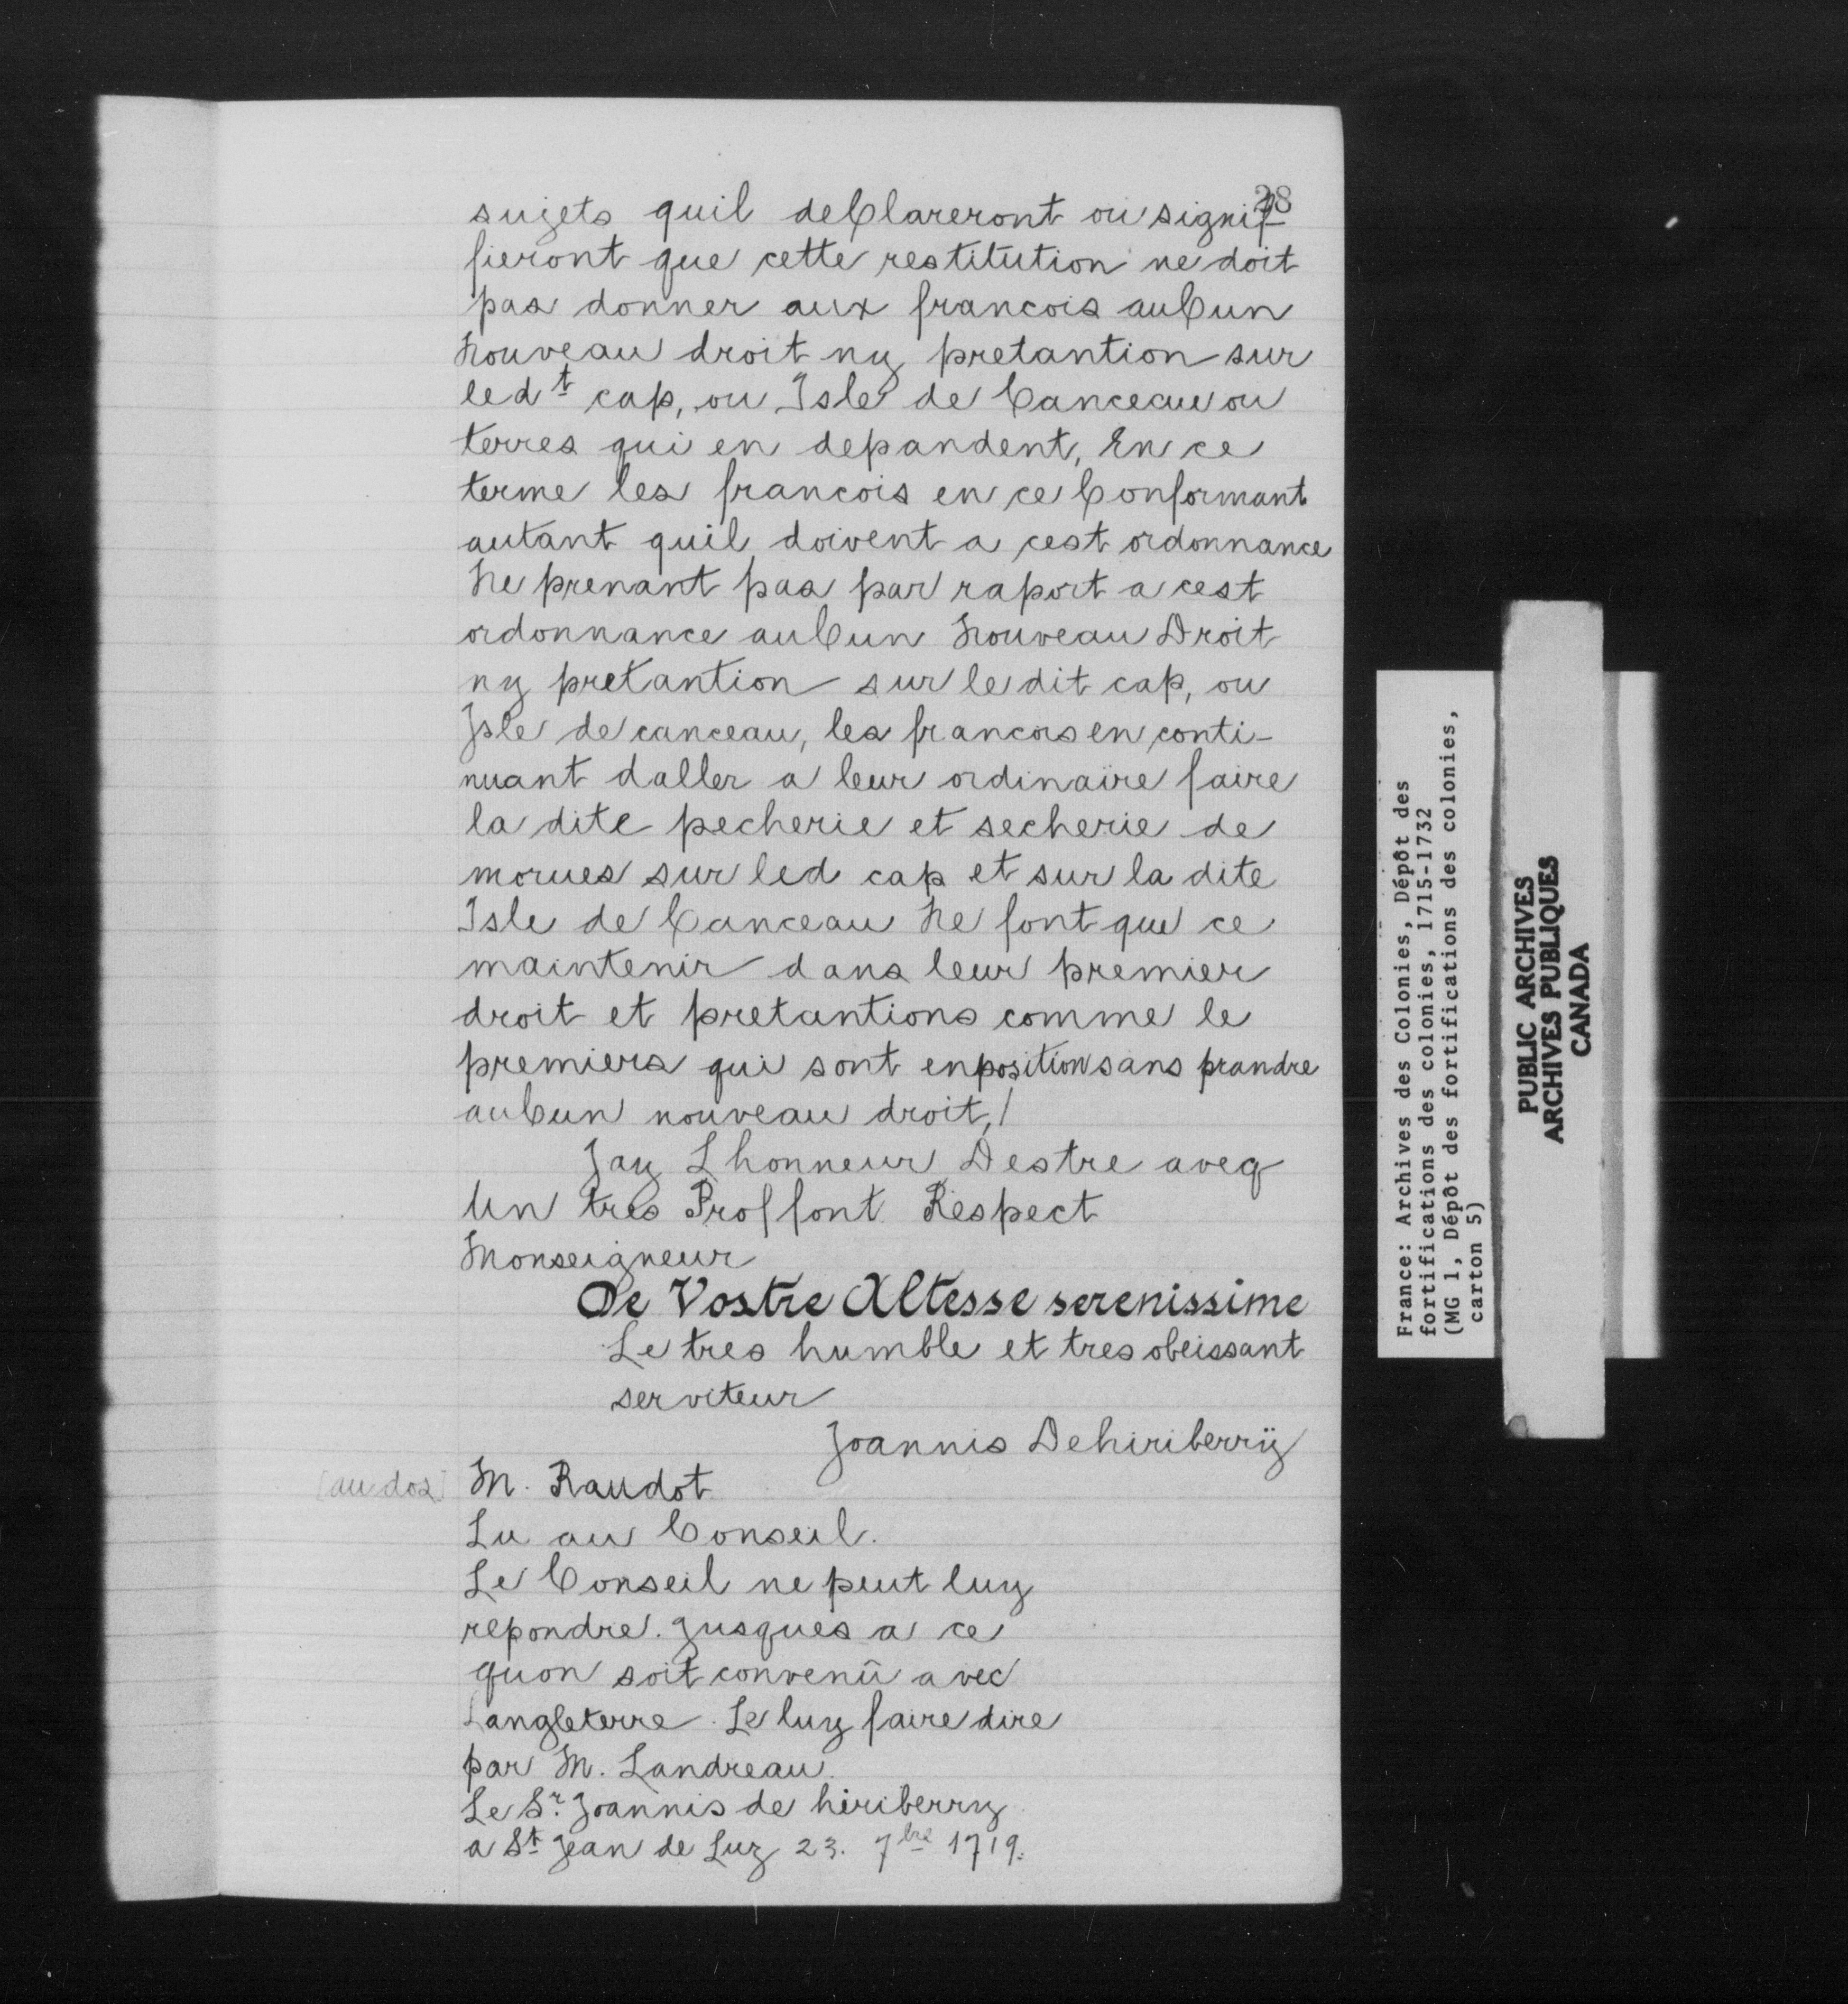 28
sujets quil deClareront ou signif-
fieront que cette restitution ne doit
pas donner aux francois auCun
Nouveau droit ny pretantion sur
ledt cap, ou Isle de Canceau ou
terres qui en depandent, En ce
terme les francois en ce Conformant
autant quil doivent a cest ordonnance
Ne prenant pas par raport a cest
ordonnance auCun Nouveau Droit
ny pretantion sur le dit cap, ou
Isle de canceau, les francois en conti-
nuant daller a leur ordinaire faire
la dite pecherie et secherie de
morues sur led cap et sur la dite
Isle de Canceau Ne font que ce
maintenir dans leur premier
droit et pretantions comme le
premiers qui sont enposition sans prandre
auCun nouveau droit,/
Jay Lhonneur Destre aveq
Un tres Proffont Respect
Monseigneur
De Vostre Altesse serenissime
Le tres humble et tres obeissant
serviteur
Joannis Dehiriberrÿ
[au dos] M. Raudot
Lu au Conseil.
Le Conseil ne peut luy
repondre jusques a ce
quon soit convenû avec
Langleterre. Le luy faire dire
par M. Landreau.
Le Sr. Joannis de hiriberry
a St Jean de Luz 23. 7bre 1719.
France: Archives des Colonies, Dépôt des
fortifications des colonies, 1715-1732
(MG 1, Dépôt des fortifications des colonies,
carton 5)
PUBLIC ARCHIVES
ARCHIVES PUBLIQUES
CANADA